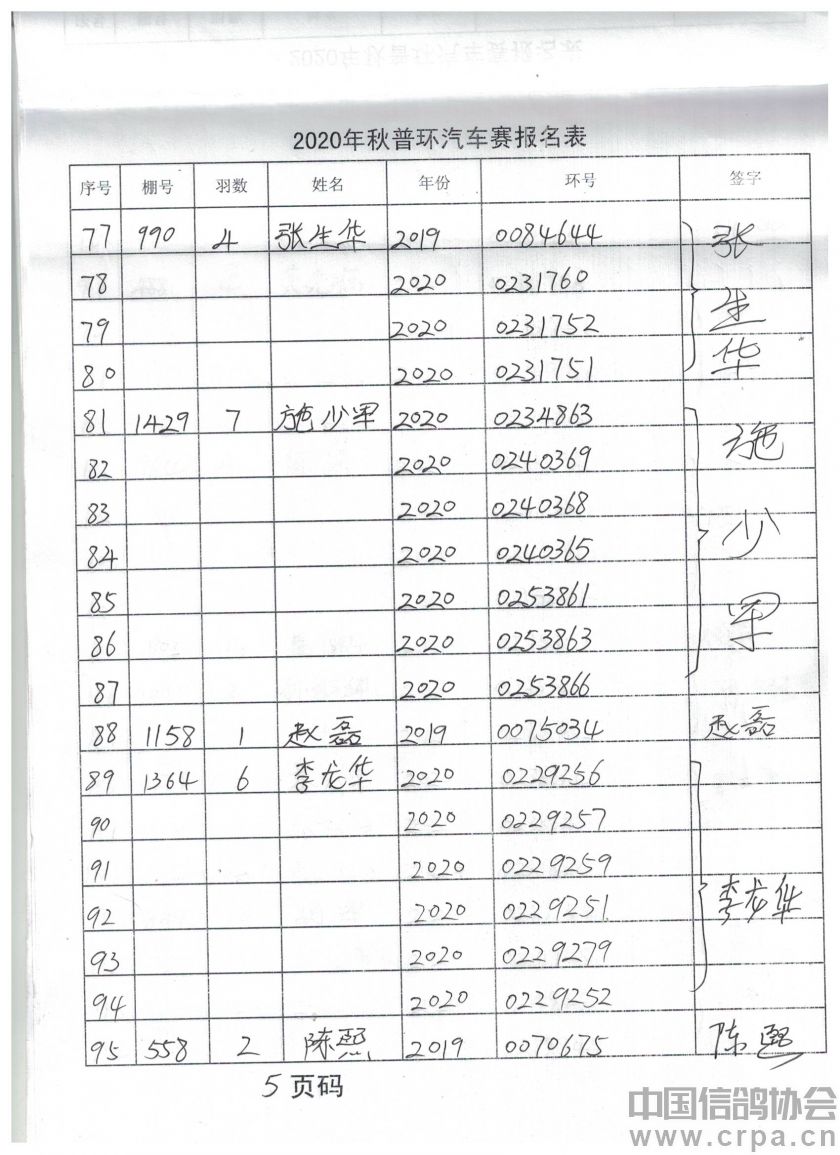 2020年秋普环汽车赛报名表
序号 棚号 羽数 姓名 年份 环号 签字
77 990 4 张生华 2019 0084644 张生华
78 2020 0231760
79 2020 0231752
80 2020 0231751
81 1429 7 施少军 2020 0234863 施少军
82 2020 0240369
83 2020 0240368
84 2020 0240365
85 2020 0253861
86 2020 0253863
87 2020 0253866
88 1158 1 赵磊 2019 0075034 赵磊
89 1364 6 李龙华 2020 0229256 李龙华
90 2020 0229257
91 2020 0229259
92 2020 0229251
93 2020 0229279
94 2020 0229252
95 558 2 陈熙 2019 0070675 陈熙
5 页码
中国信鸽协会
www.crpa.cn